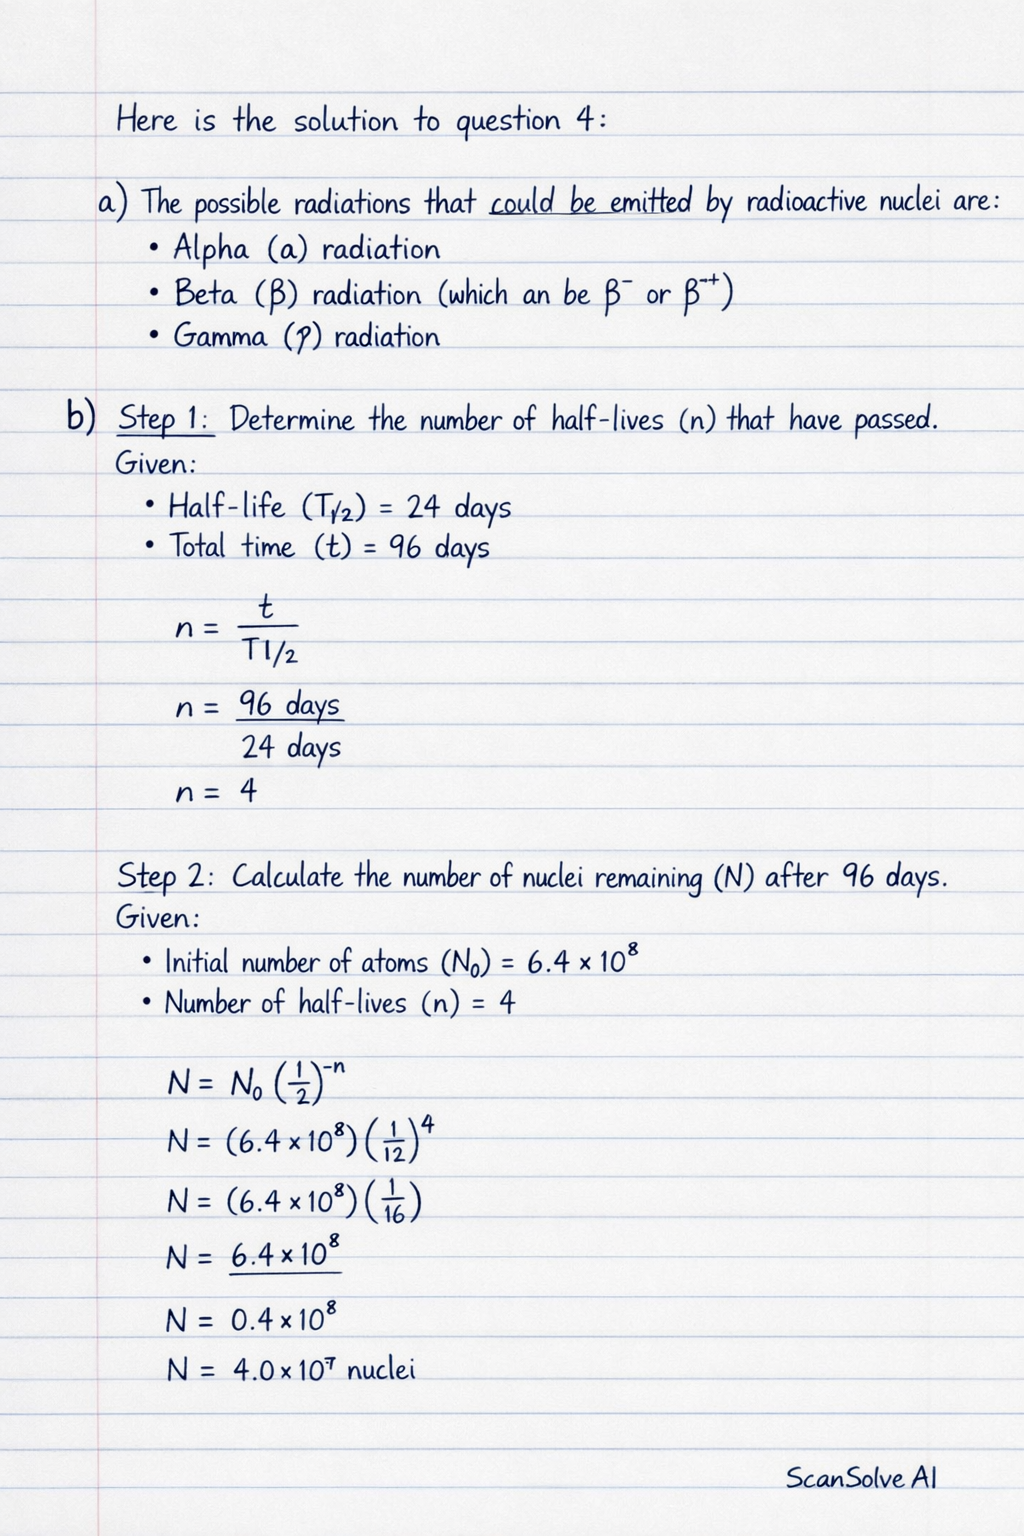 Here is the solution to question 4:
a) The possible radiations that could be emitted by radioactive nuclei are:
• Alpha (a) radiation
• Beta (β) radiation (which an be β⁻ or β⁻⁺)
• Gamma (γ) radiation
b) Step 1: Determine the number of half-lives (n) that have passed.
Given:
• Half-life (T1/2) = 24 days
• Total time (t) = 96 days
n = t
T1/2
n = 96 days
24 days
n = 4
Step 2: Calculate the number of nuclei remaining (N) after 96 days.
Given:
• Initial number of atoms (N₀) = 6.4 × 10⁸
• Number of half-lives (n) = 4
N = N₀ (1/2)⁻ⁿ
N = (6.4 × 10⁸) (1/12)⁴
N = (6.4 × 10⁸) (1/16)
N = 6.4 × 10⁸
N = 0.4 × 10⁸
N = 4.0 × 10⁷ nuclei
ScanSolve AI